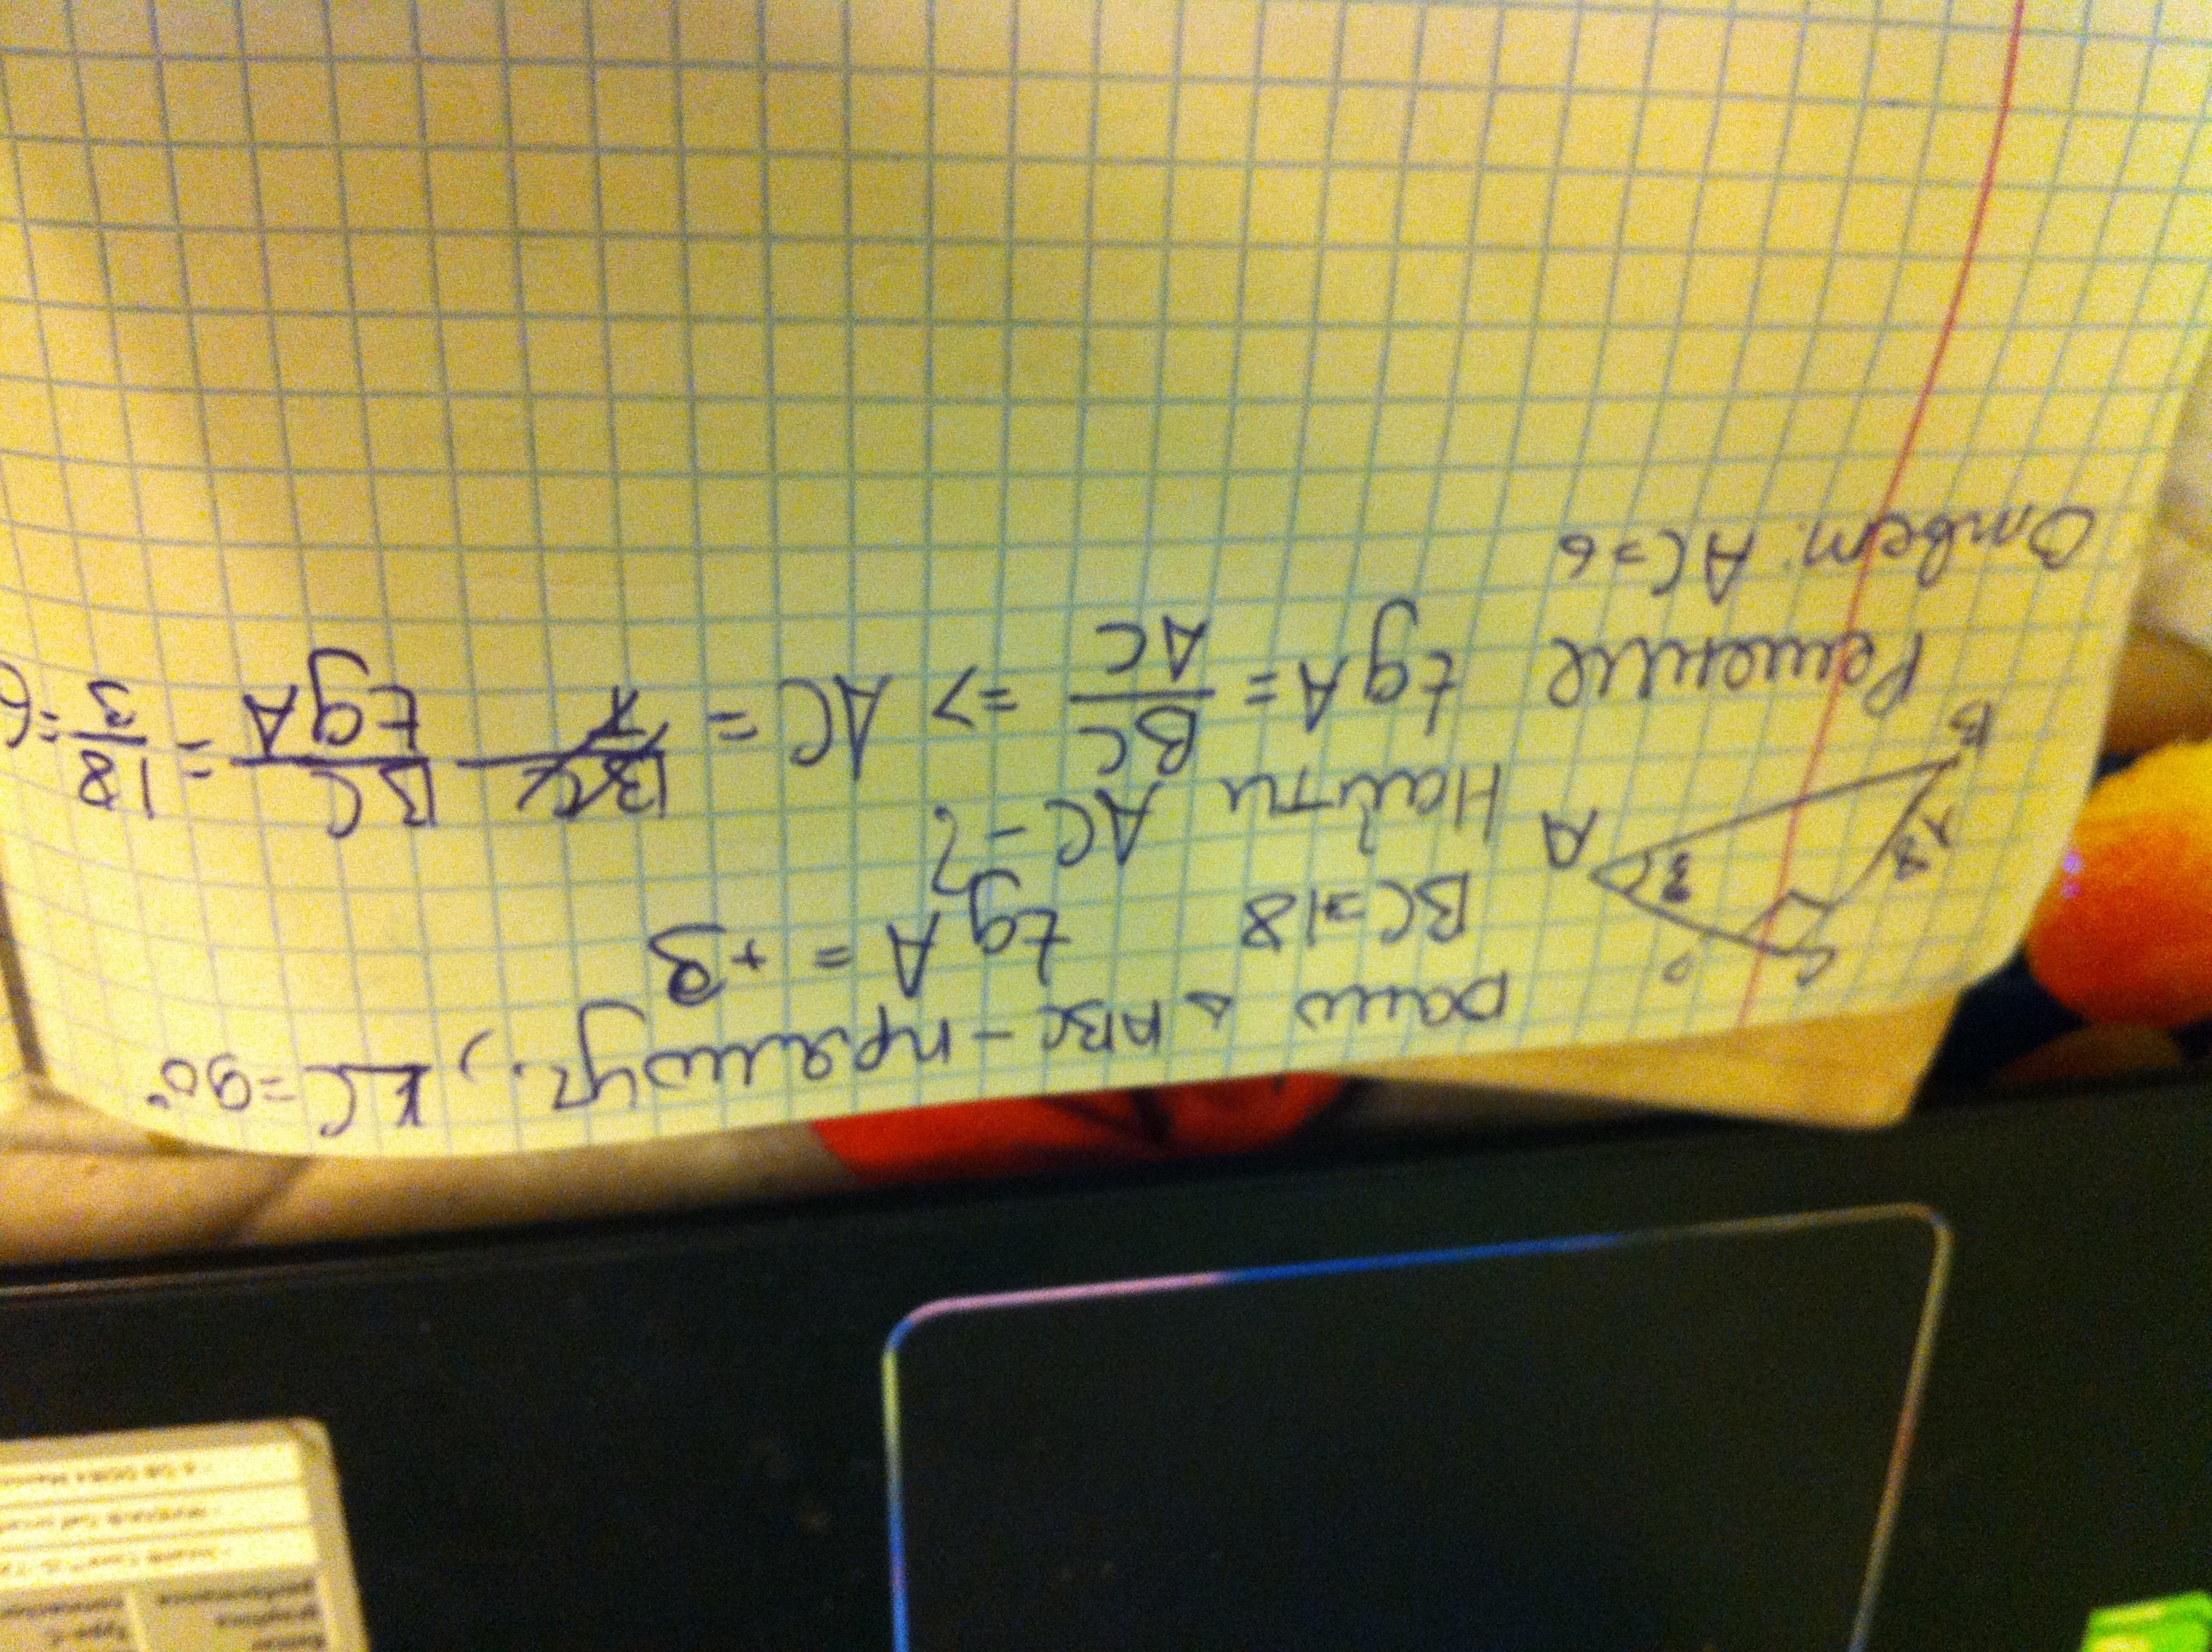 Дано △ABC - прямоуг., ∠C = 90°
BC = 18 tg A = +3
Найти AC - ?
C
18
3
A
B
Решение tg A = BC/AC => AC = BC/tg A = 18/3 = 6
Ответ: AC = 6